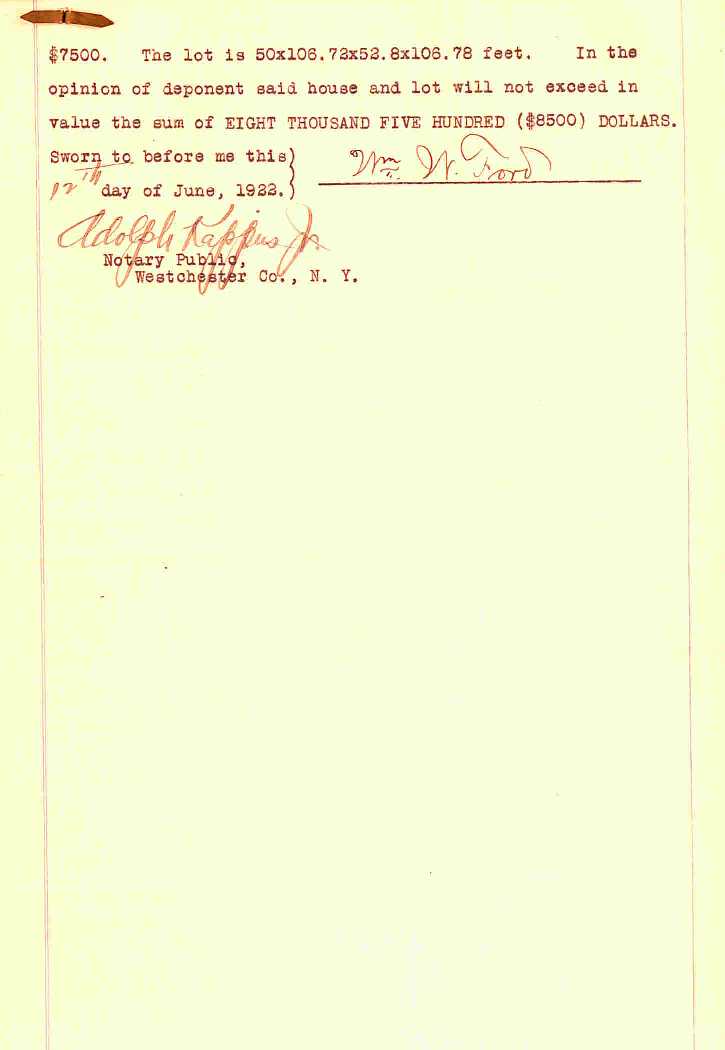 $7500. The lot is 50x106.72x52.8x106.78 feet. In the
opinion of deponent said house and lot will not exceed in
value the sum of EIGHT THOUSAND FIVE HUNDRED ($8500) DOLLARS.
Sworn to before me this)
12th day of June, 1922.)
Wm. W. Ford
Adolph Kappus Jr.
Notary Public,
Westchester Co., N. Y.